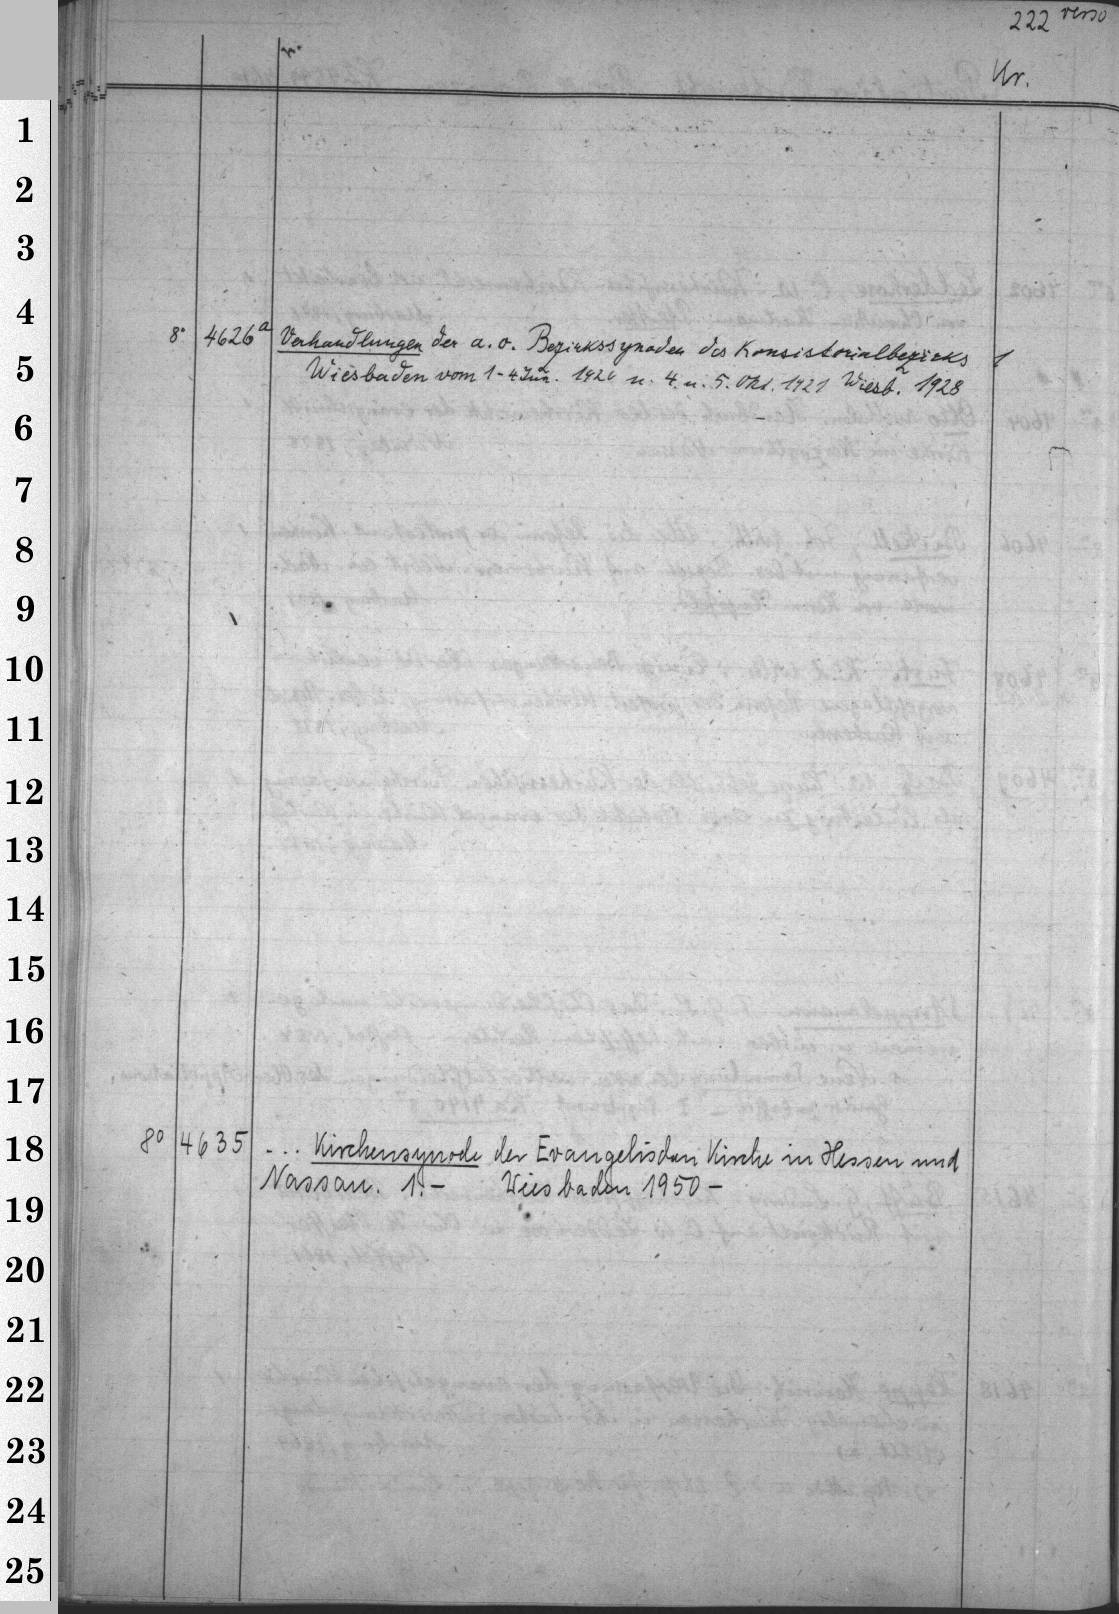 222 verso
Nr.
1
2
3
4
8° 4626a Verhandlungen der a. o. Bezirkssynoden des Konsistorialbezirks 1
5
Wiesbaden vom 1-4 Jun. 1926 u. 4. u. 5. Okt. 1921 Wiesb. 1928
6
7
8
9
10
11
12
13
14
15
16
17
18
8° 4635 ... Kirchensynode der Evangelischen Kirche in Hessen und
Nassau. 1.- Wiesbaden 1950 -
19
20
21
22
23
24
25